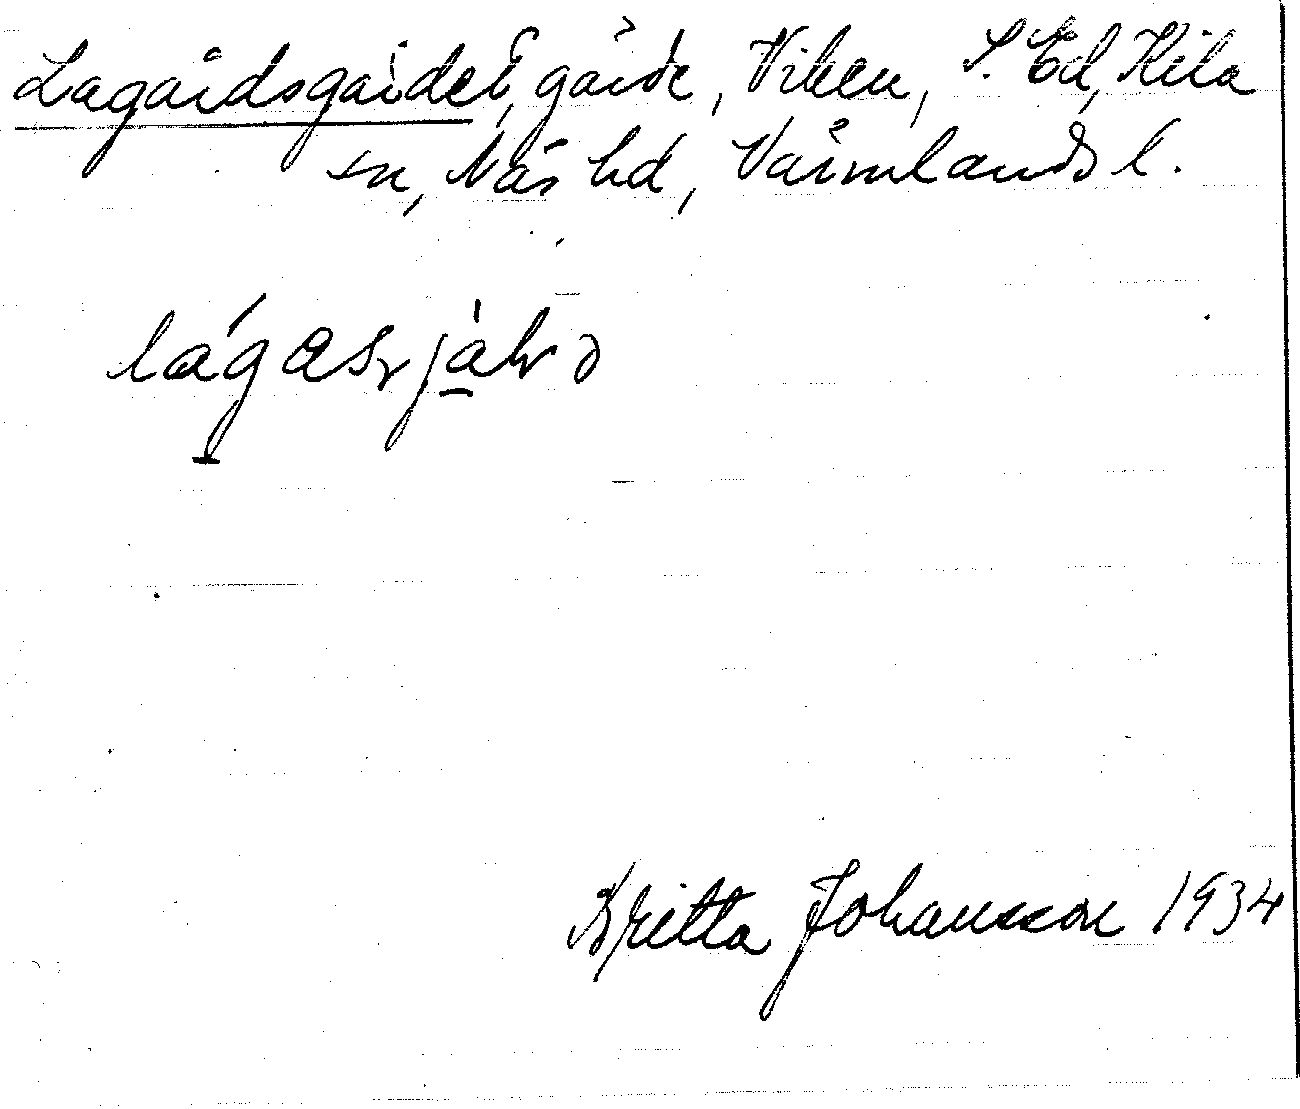 Lagårdsgärdet, gärde, Viken, S. Ed, Kila
sn, Näs hd, Värmlands l.
Britta Johansson 1934